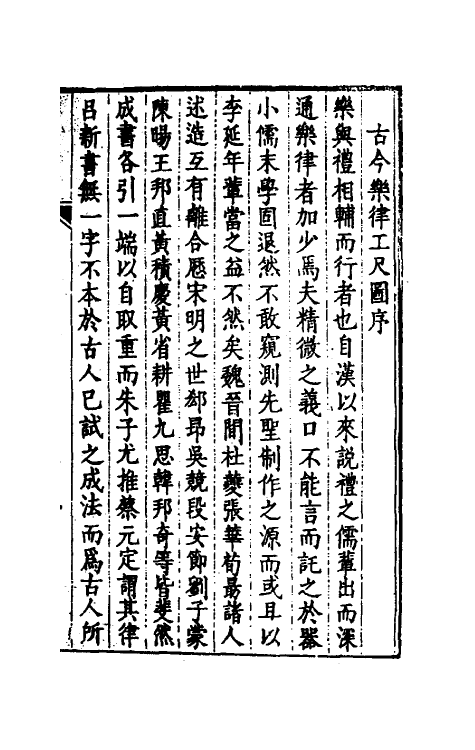 古今樂律工尺圖序
樂與禮相輔而行者也自漢以來說禮之儒輩出而深
通樂律者加少焉夫精微之義口不能言而託之於器
小儒末學固退然不敢窺測先聖制作之源而或且以
李延年輩當之益不然矣魏晉間杜夔張華荀勗諸人
述造互有離合歷宋明之世郄昻吳兢段安節劉子蒙
陳暘王邦直黃積慶黃省耕瞿九思韓邦奇等皆斐然
成書各引一端以自取重而朱子尤推蔡元定謂其律
呂新書無一字不本於古人已試之成法而爲古人所